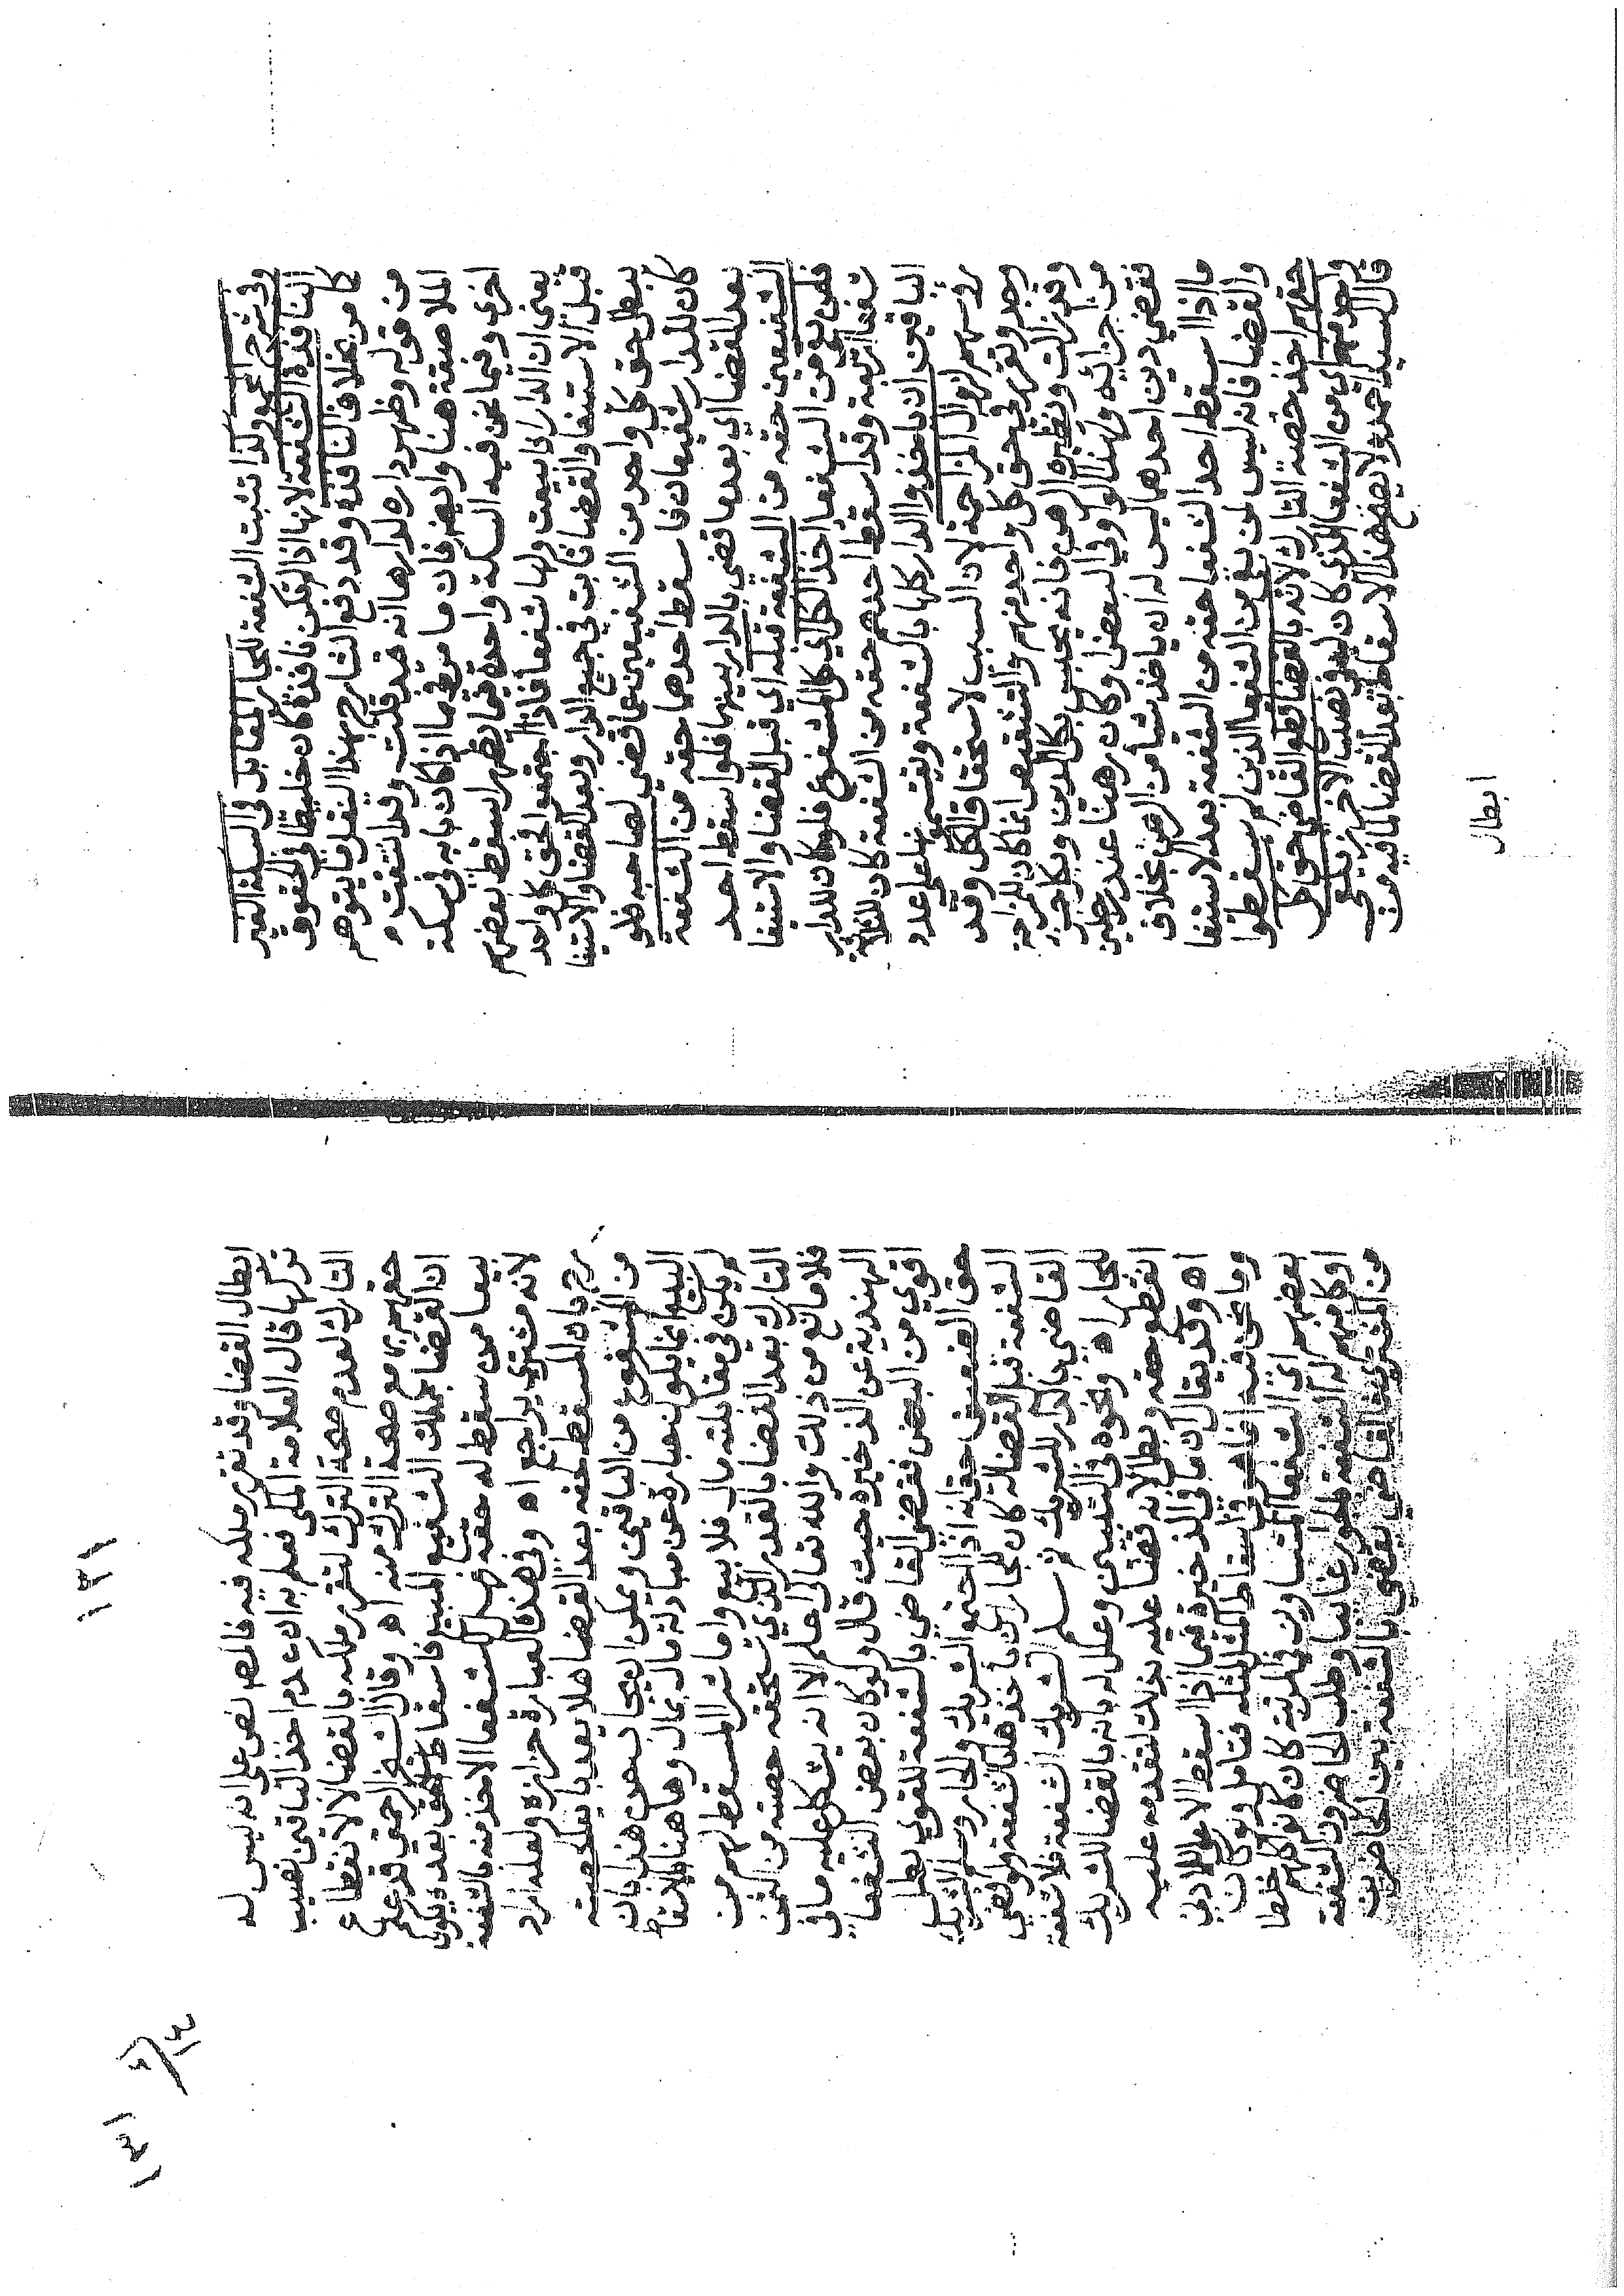 وفي شرح المجمع وكذا تثبت الشفعة للجار المقابل في السكة الغير
النافذة الشفعة لانها اذا لم تكن نافذة كان خليطا في الحقوق
كما مر بخلاف النافذة وقد دفع الشارح بهذا النقل ما يتوهم
من قوله وظهر داره لدارها انه قيد قلت وقد انتفت
الملاصقة هنا وايضا فان ما مر فيما اذا كان بابه في سكة
اخرى وفيما نحن فيه السكة واحدة فيما يظهر اسقط بعضهم
يعنى ان الدار اذا بيعت ولها شفعا فاذا اجتمعوا فحق كل واحد
قبل الاستيفا والقضا ثابت في جميع الدار وبعد القضا والاستيفا
يبطل حق كل واحد من الشفيعين عما قضي لصاحبه فلو
كان للدار شفيعان فاسقط احدهما حقه من الشفعة
بعد القضا اي بعد ما قضي بالدار بينهما فلو اسقط احد
الشفيعين حقه من الشفعة قبله اي قبل القضا والاستيفا
فلمن بقي من الشفعا اخذ الكل اي كل المشفوع فلو كان للدار
شفعا اربعة وقد اسقط احدهم حقه من الشفعة كان للثلاثة
الباقين ان ياخذوا الدار كلها بالشفعة وتقسم بينهم على عدد
روسهم لزوال المزاحمة لان السبب لاستحقاق الكل وقد
وجد وتقرر في حق كل واحد منهم والتشقيص انما كان للمزاحمة
وقد زالت ونظيره الرهن فانه يحبس بكل الدين وبكل جزء
من اجزائه ولهذا لو اوفي البعض او كان رهنا عند رجلين
فقضي دين احدهما ليس له ان ياخذ شيأ من الرهن بخلاف
ما اذا اسقط احد الشفعا حقه من الشفعة بعد الاستيفا
والقضا فانه ليس لمن بقي من الشفعا الذين لم يسقطوا
حقهم اخذ حصة التارك لانه بالقضا قطع القاضي حق كل
واحد منهم اي من الشفعا الذي كان له في نصيب الاخر زيلعى
قال السيد احمد ولا يصح هذا الاسقاط بعد القضا لما فيه من
ابطال
١٣١
ابطال القضا وقد تقرر ملكه فيه فالمصر نص على انه ليس له
تركها قال العلامة المكي فعلم به ان عدم اخذ الباقين نصيب
التارك لعدم صحة الترك لتقرر ملكه بالقضا لا لانقطاع
حقهم به مع صحة الترك منه اه وقال الشيخ الرحمتي قد علم
ان القضا يملك الشفيع المبيع فاسقاط الحق بعده يكون
بيعا ممن سقط له حقه فهل للشفعا الاخذ منه بالشفعة
لانه مشتري يراجع اه وفي هذه العبارة حزازة ولعله اراد
من المشفوع من الباقين ويمكن ان يجاب عن هذا بان
البيع انما يكون عبارة عن مبادلة مال بمال وها هنا الاسقاط
لم يكن في مقابلته مال فلا بيع واما شرا المسقط لهم من
التارك بعد القضا بالقدر الذي تستحقه حصته من الثمن
فلا مانع من ذلك والله تعالى اعلم الا انه يشكل عليه ما في
الهندية عن الذخيرة حيث قال ولو كان بعض الشفعا
اقوي من البعض فقضي القاضي بالشفعة للقوي بطل
حق الضعيف حتى انه اذا اجتمع الشريك والجار وسلم الشريك
الشفعة قبل القضا له كان للجار ان ياخذها بالشفعة ولو قضي
القاضي بالدار للشريك ثم سلم الشريك الشفعة فلا شفعة
للجار اه ونحوه في التبيين وعلل له بانه بالقضا للشريك
انقطع حقه وبطل لانه قضا عليه بذلك لتقدمه عليه
اه وقد يقال ان ما في الذخيرة فيما اذا اسقط الاعلا للادني
وما نحن فيه انما هو في اسقاط المثل لمثله فتامل ولو كان
بعضهم اي الشفعا المتساوين في المرتبة كان كانوا كلهم خلطا
او كل منهم له الشفعة بالجوار غايبا وطلب الحاضرون الشفعة
من المشتري فالقاضي يقضي بالشفعة بين الحاضرين
١٣١